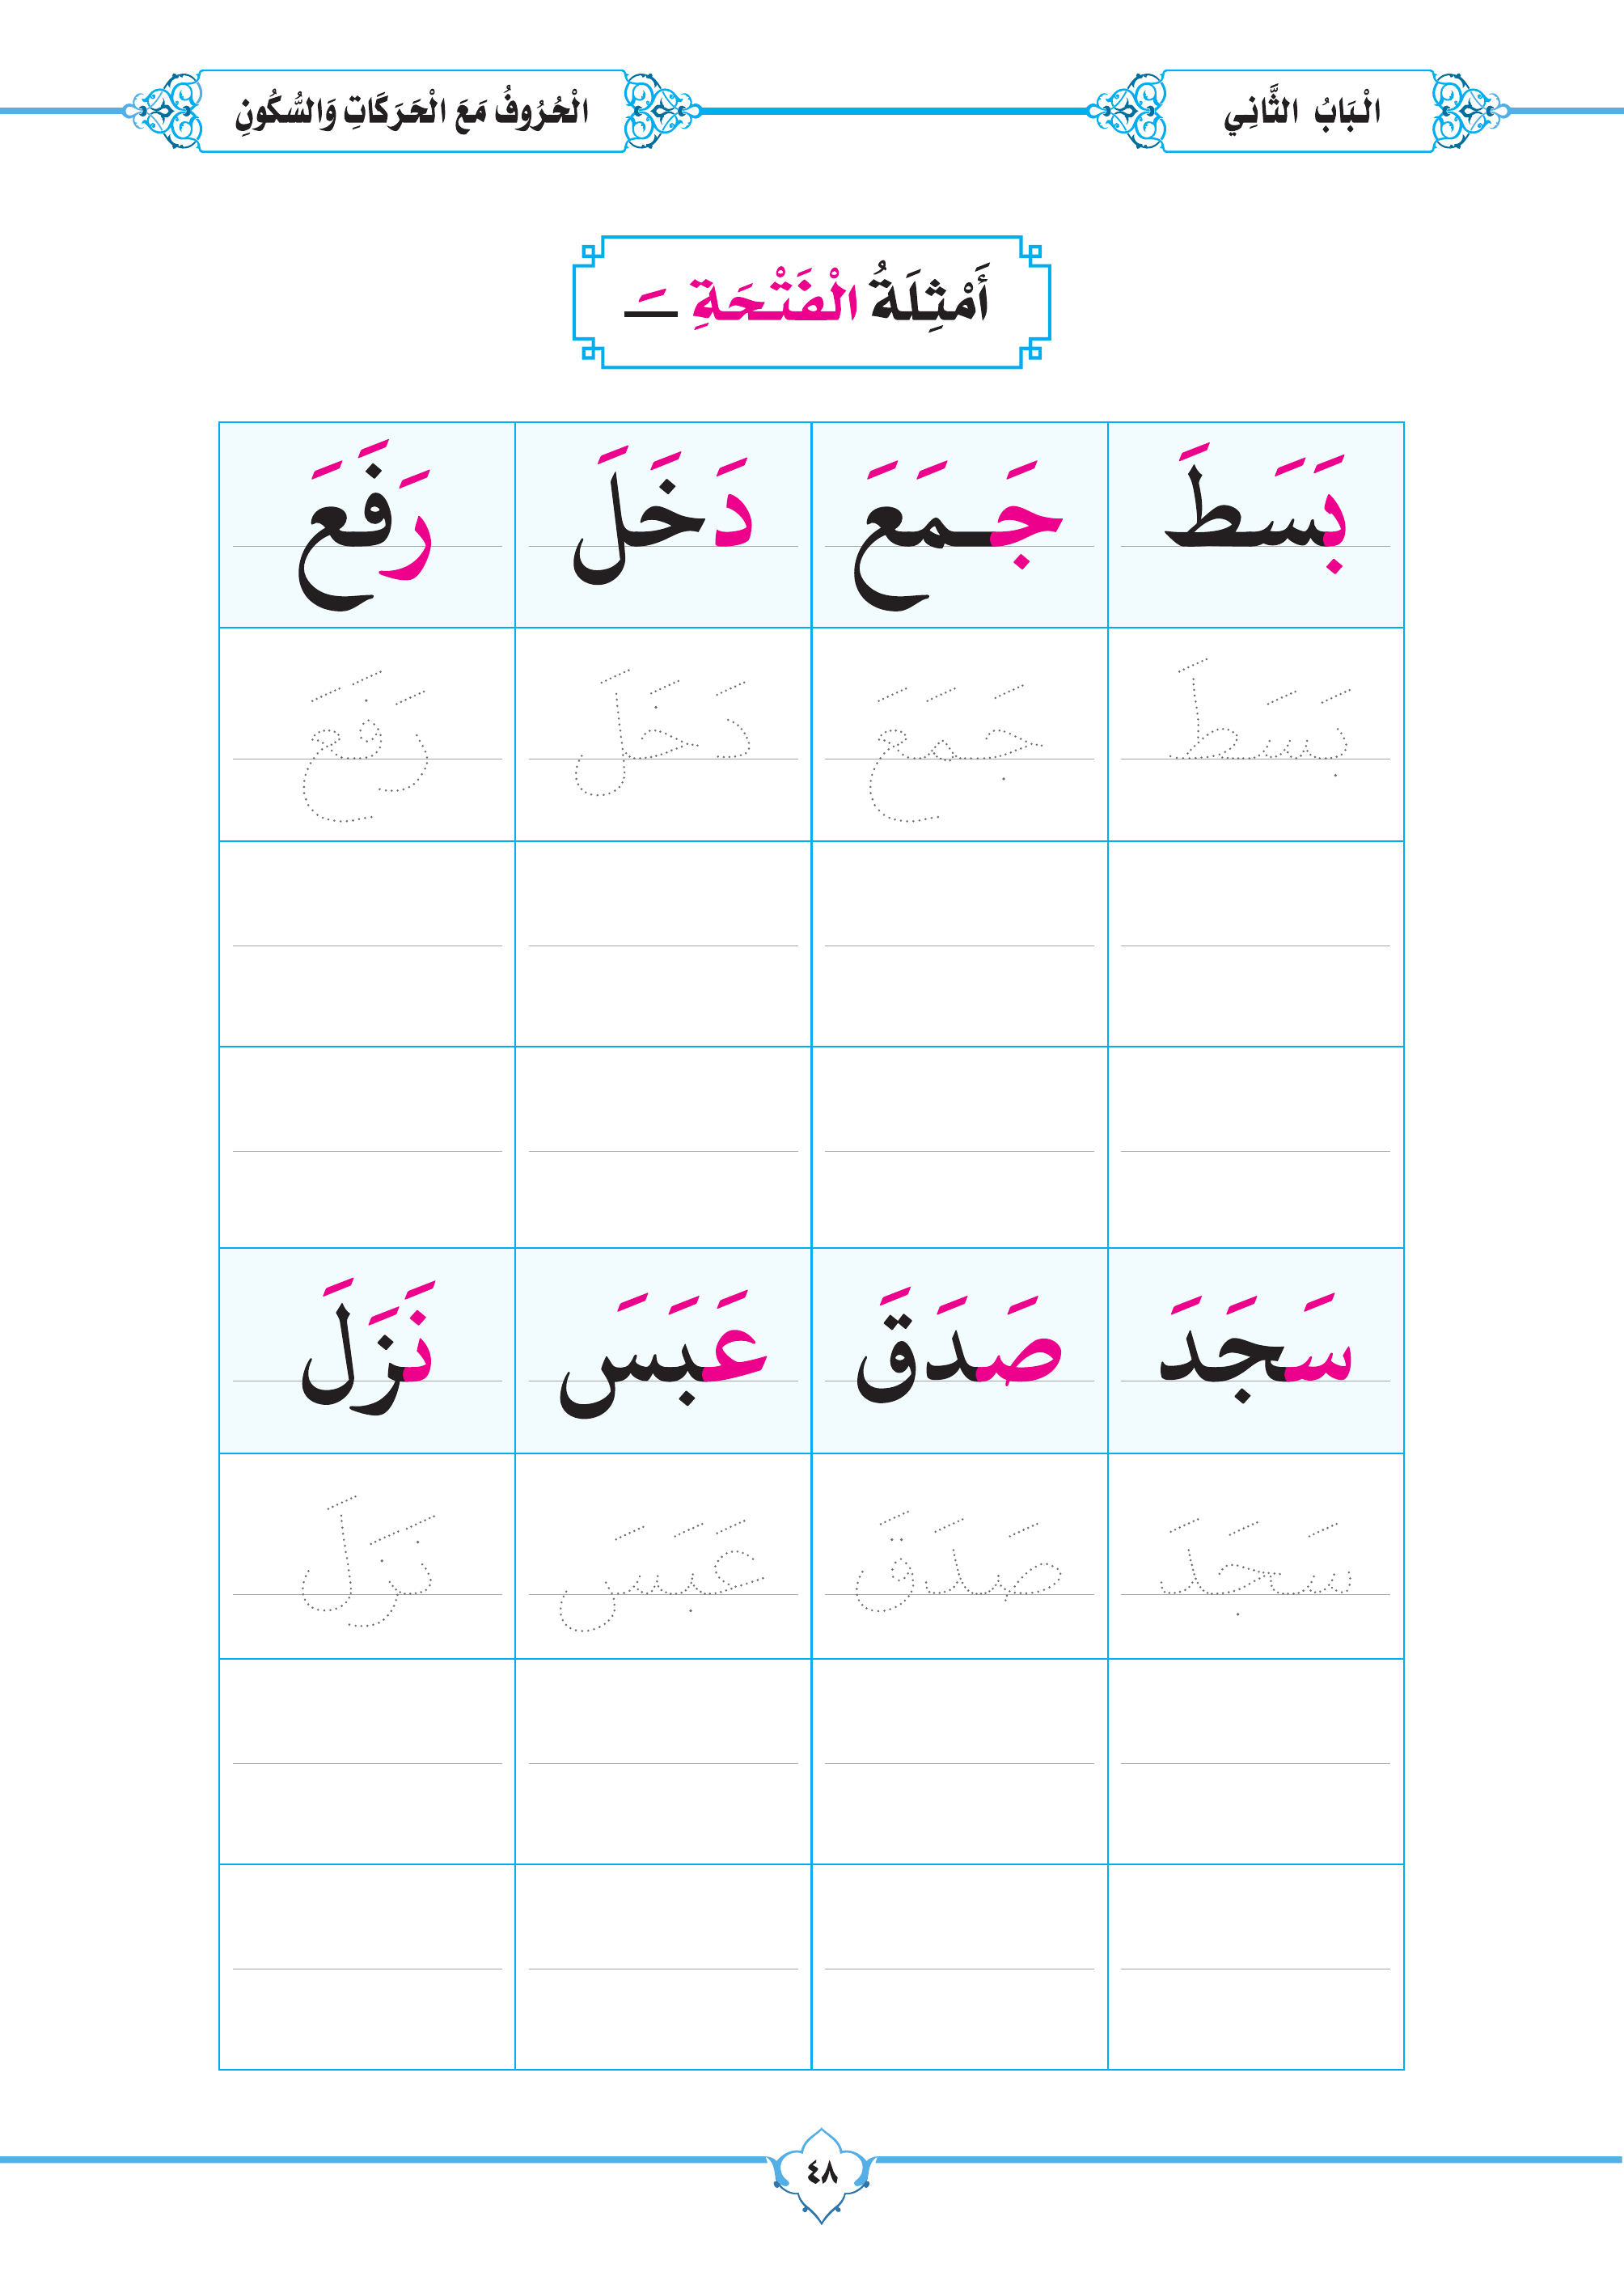 الْبَابُ الثَّانِي
الْحُرُوفُ مَعَ الْحَرَكَاتِ وَالسُّكُونِ
أَمْثِلَةُ الْفَتْحَةِ ـَ
بَسَطَ جَمَعَ دَخَلَ رَفَعَ
بَسَطَ جَمَعَ دَخَلَ رَفَعَ
سَجَدَ صَدَقَ عَبَسَ نَزَلَ
سَجَدَ صَدَقَ عَبَسَ نَزَلَ
٤٨